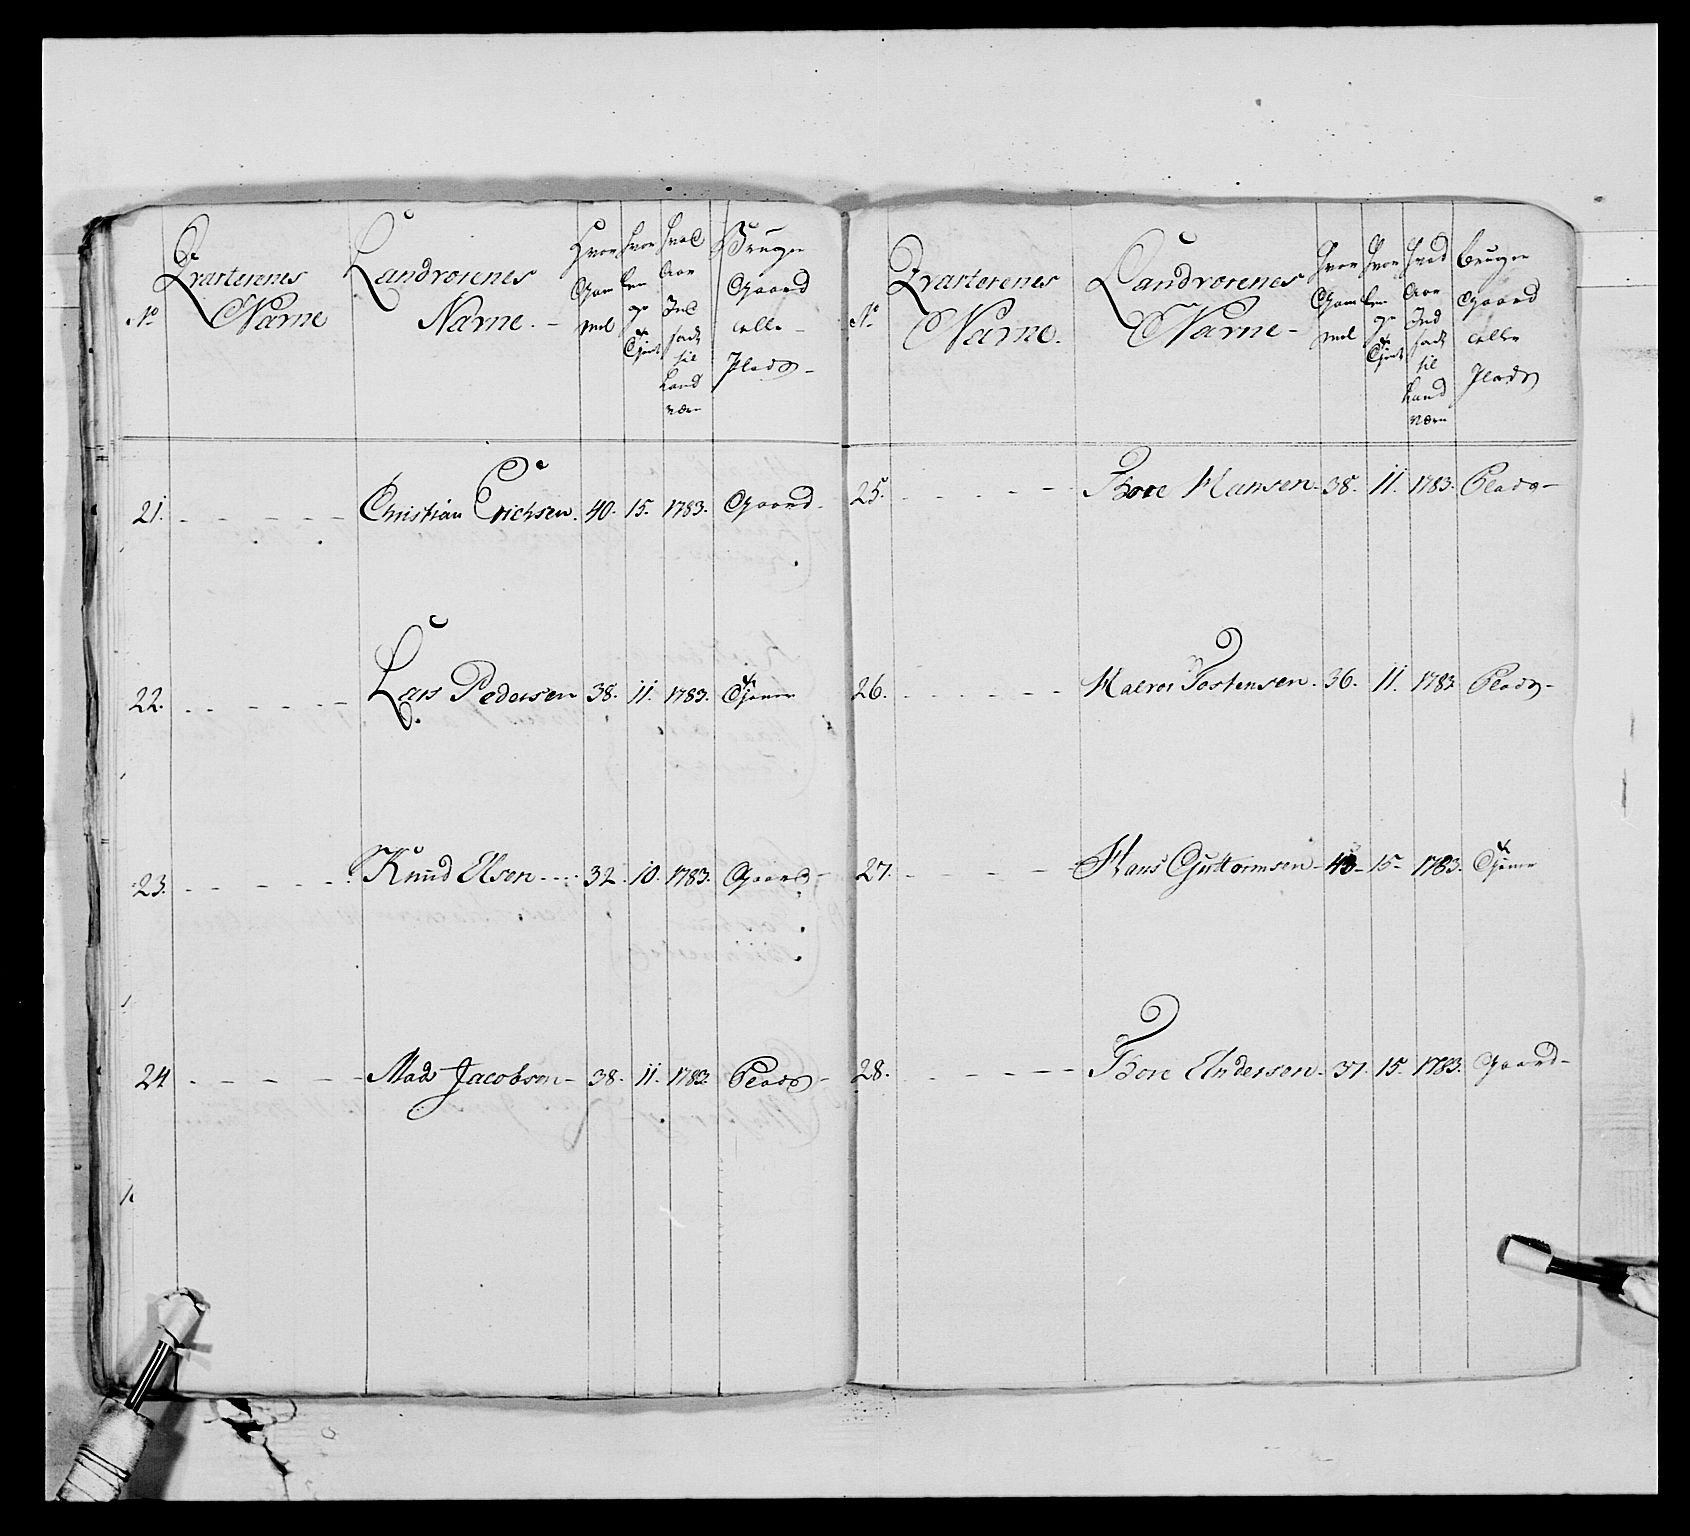 No
Qvarterenes
Navne
Landvorenes
Navne. -
Hvor
Gam
mel
hvor
len
ge
Tjent
hvad
Aar
Ind
sadt
til
Land
værn
Bruger
Gaard
eller
Plads -
21. - - - - - Christian Erichsen. 40. 15. 1783. Gaard.
22. - - - - - Lars Pedersen 38. 11. 1783. Tjener
23. - - - - - Knud Olsen - - 32. 10. 1783. Gaard -
24 - - - - - Mads Jacobsen - 38. 11. 1783. Plads -
No
Qvarterenes
Navne.
Landvorenes
Navne -
Hvor
Gam
mel
Hvor
len
ge
Tjent
Hvad
Aar
Ind
sadt
til
Land
værn
Bruger
Gaard
eller
Plads
25. - - - - - Tore Hansen. 38. 11. 1783. Plads -
26. - - - - - Halvor Tostensen. 36. 11. 1783 Plads -
27. - - - - Hans Guttormsen - 43 - 15 - 1783. Tjener
28. - - - - - Tore Andersen. 37. 15. 1783. Gaard -